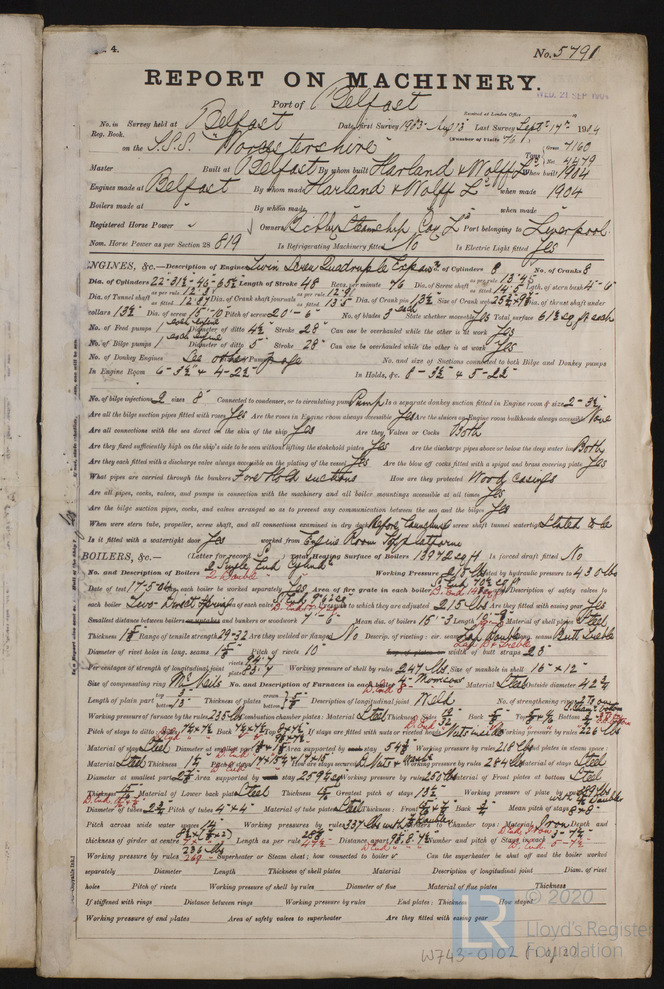 4.
No. 5791
REPORT ON MACHINERY.
WED. 21 SEP 1904
Port of Belfast
Received at London Office
No. in Survey held at Belfast Date, first Survey 1903 - Aug 13 Last Survey Sept. 17th 1904
Reg. Book. (Number of Visits 76)
on the S.S.S. "Worcestershire" Tons Gross 7160 Net 4479
Master Built at Belfast By whom built Harland & Wolff Ld When built 1904
Engines made at Belfast By whom made Harland & Wolff Ld when made 1904
Boilers made at " By whom made " when made
Registered Horse Power " Owners Bibby Steamship Coy Ld Port belonging to Liverpool
Nom. Horse Power as per Section 28 819 Is Refrigerating Machinery fitted No Is Electric Light fitted Yes
ENGINES, &c.—Description of Engines Twin Screw Quadruple Expann No. of Cylinders 8 No. of Cranks 8
Dia. of Cylinders 22"-31½"-46"-65½" Length of Stroke 48 Revs. per minute 76 Dia. of Screw shaft as per rule 13.45 Lgth. of stern bush 4'-6"
Dia. of Tunnel shaft as per rule 12.3 as fitted 12.87 Dia. of Crank shaft journals as per rule 12.9 as fitted 13.5 Dia. of Crank pin 13½ Size of Crank webs 25½ × 9⅛ Dia. of thrust shaft under
collars 13½" Dia. of screw 15'-10" Pitch of screw 20'-6" No. of blades 3 each State whether moveable Yes Total surface 61½ sq ft each
No. of Feed pumps 1 each engine Diameter of ditto 4½ Stroke 28" Can one be overhauled while the other is at work Yes
No. of Bilge pumps 1 each engine Diameter of ditto 5" Stroke 28" Can one be overhauled while the other is at work Yes
No. of Donkey Engines See other page No. and size of Suctions connected to both Bilge and Donkey pumps
In Engine Room 6 - 3½" & 4 - 2½" In Holds, &c. 8 - 3½" & 5 - 2½"
No. of bilge injections 2 sizes 8" Connected to condenser, or to circulating pump Pump Is a separate donkey suction fitted in Engine room & size 2 - 3½"
Are all the bilge suction pipes fitted with roses Yes Are the roses in Engine room always accessible Yes Are the sluices on Engine room bulkheads always accessible None
Are all connections with the sea direct on the skin of the ship Yes Are they Valves or Cocks Both
Are they fixed sufficiently high on the ship's side to be seen without lifting the stokehold plates Yes Are the discharge pipes above or below the deep water line Both
Are they each fitted with a discharge valve always accessible on the plating of the vessel Yes Are the blow off cocks fitted with a spigot and brass covering plate Yes
What pipes are carried through the bunkers Fore Hold suctions How are they protected Wood casings
Are all pipes, cocks, valves, and pumps in connection with the machinery and all boiler mountings accessible at all times Yes
Are the bilge suction pipes, cocks, and valves arranged so as to prevent any communication between the sea and the bilges Yes
When were stern tube, propeller, screw shaft, and all connections examined in dry dock Before Launching Is the screw shaft tunnel watertight Stated to be
Is it fitted with a watertight door Yes worked from Engine Room Top platform
BOILERS, &c.— (Letter for record S) Total Heating Surface of Boilers 13972 sq ft Is forced draft fitted No
No. and Description of Boilers 2 Single End Cylindl 2 Double Working Pressure 215 lbs Tested by hydraulic pressure to 430 lbs
Date of test 17-5-04 Can each boiler be worked separately Yes Area of fire grate in each boiler No. and Description of safety valves to
each boiler Two Direct Spring Area of each valve Pressure to which they are adjusted 215 lbs Are they fitted with easing gear Yes
Smallest distance between boilers or uptakes and bunkers or woodwork 7'-6" Mean dia. of boilers 15'-3 Length Material of shell plates Steel
Thickness Range of tensile strength 29-32 Are they welded or flanged No Descrip. of riveting: cir. seams Lap Double long. seams Butt Treble
Diameter of rivet holes in long. seams Pitch of rivets 10" Lap of plates or width of butt straps 23"
Per centages of strength of longitudinal joint rivets plate Working pressure of shell by rules 247 lbs Size of manhole in shell 16" × 12"
Size of compensating ring McNeils No. and Description of Furnaces in each boiler 4 - Morisons D. End 8 Material Steel Outside diameter 42¾
Length of plain part top bottom Thickness of plates crown bottom Description of longitudinal joint Weld No. of strengthening rings
Working pressure of furnace by the rules 235 lbs Combustion chamber plates: Material Steel Thickness: Sides Back Top Bottom
Pitch of stays to ditto: Sides Back Top If stays are fitted with nuts or riveted heads Nuts inside Working pressure by rules 226 lbs
Material of stays Steel Diameter at smallest part Area supported by each stay Working pressure by rules 218 lbs End plates in steam space:
Material Steel Thickness Pitch of stays How are stays secured D Nuts & Washs Working pressure by rules 284 lbs Material of stays Steel
Diameter at smallest part Area supported by each stay Working pressure by rules 250 lbs Material of Front plates at bottom Steel
Thickness Material of Lower back plate Steel Thickness Greatest pitch of stays 13½ Working pressure of plate by rules
Diameter of tubes 2¾ Pitch of tubes 4" × 4" Material of tube plates Steel Thickness: Front Back Mean pitch of stays 8" × 8"
Pitch across wide water spaces 14" Working pressures by rules 337 lbs Girders to Chamber tops: Material Iron Depth and
thickness of girder at centre Length as per rule Distance apart Number and pitch of Stays in each
Working pressure by rules 236 lbs 269 Superheater or Steam chest; how connected to boiler Can the superheater be shut off and the boiler worked
separately Diameter Length Thickness of shell plates Material Description of longitudinal joint Diam. of rivet
holes Pitch of rivets Working pressure of shell by rules Diameter of flue Material of flue plates Thickness
If stiffened with rings Distance between rings Working pressure by rules End plates: Thickness How stayed
Working pressure of end plates Area of safety valves to superheater Are they fitted with easing gear
© 2020
Lloyd's Register
Foundation
LR
W743-0102 (1 of 2)